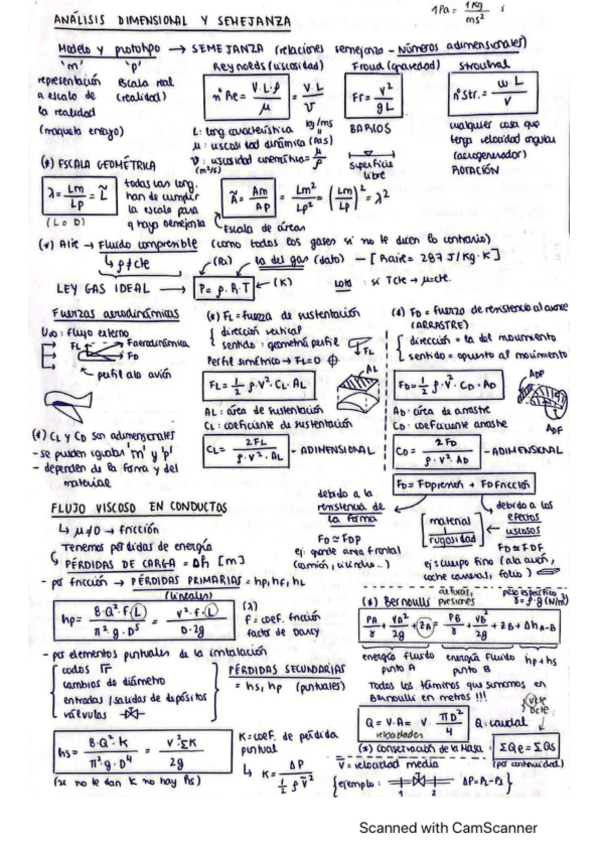 1Pa = 1Kg / ms²
ANÁLISIS DIMENSIONAL Y SEMEJANZA
Modelo y prototipo → SEMEJANZA (relaciones semejanza - Números adimensionales)
'm' 'p'
representación a escala de la realidad (maqueta ensayo)
Escala real (realidad)
Reynolds (viscosidad)
nº Re = V·L·ρ / μ = V·L / ν
L: long. característica
μ: viscosidad dinámica (Pa·s) kg/ms
ν: viscosidad cinemática = μ/ρ (m²/s)
Froud (gravedad)
Fr = v² / gL
BARCOS
superficie libre
Strouhal
nº Str. = ω·L / V
cualquier cosa que tenga velocidad angular (aerogenerador)
ROTACIÓN
(*) ESCALA GEOMÉTRICA
λ = Lm / Lp = L̃
(L o D)
todas las long. han de cumplir la escala para q haya semejanza
Ã = Am / Ap = Lm² / Lp² = (Lm / Lp)² = λ²
Escala de áreas
(*) Aire → Fluido compresible (como todos los gases si no te dicen lo contrario)
ρ ≠ cte
(Pa) la del gas (dato) - [Raire = 287 J/Kg·K]
LEY GAS IDEAL → P = ρ·R·T (K)
Nota: si Tcte → μ=cte.
Fuerzas aerodinámicas
U∞: flujo externo
FL Faerodinámica
FD
perfil ala avión
(*) CL y CD son adimensionales
- se pueden igualar 'm' y 'p'
- dependen de la forma y del material
(*) FL = fuerza de sustentación
dirección vertical
sentido: geometría perfil
FL
Perfil simétrico → FL=0
AL
FL = 1/2 ρ·V²·CL·AL
AL: área de sustentación
CL: coeficiente de sustentación
CL = 2FL / ρ·V²·AL - ADIMENSIONAL
(*) FD = fuerza de resistencia al avance (ARRASTRE)
dirección = la del movimiento
sentido = opuesto al movimiento
ADP
FD = 1/2 ρ·V²·CD·AD
ADF
AD: área de arrastre
CD: coeficiente arrastre
CD = 2FD / ρ·V²·AD - ADIMENSIONAL
FD = FDpresión + FDfricción
debido a la resistencia de la forma
FD ≈ FDP
ej: grande area frontal
material
rugosidad
debido a los efectos viscosos
FD ≈ FDF
ej: cuerpo fino (ala avión, coche carreras, folio)
FLUJO VISCOSO EN CONDUCTOS
μ≠0 → fricción
Tenemos pérdidas de energía
PÉRDIDAS DE CARGA = Δh [m]
- por fricción → PÉRDIDAS PRIMARIAS = hp, hf, hL
(lineales)
hp = 8·Q²·f·L / π²·g·D⁵ = v²·f·L / D·2g
(λ)
f = coef. fricción
factor de Darcy
- por elementos puntuales de la instalación
codos
cambios de diámetro
entradas/salidas de depósitos
válvulas
PÉRDIDAS SECUNDARIAS = hs, hp (puntuales)
hs = 8·Q²·K / π²·g·D⁴ = v²·ΣK / 2g
(si no te dan K no hay hs)
K = coef. de pérdida puntual
K = ΔP / 1/2 ρ v̄²
(*) Bernoulli
alturas, presiones
peso específico γ = ρ·g (N/m³)
PA/γ + VA²/2g + ZA = PB/γ + VB²/2g + ZB + ΔhA-B
energía fluido punto A
energía fluido punto B
hp+hs
Todos los términos que sumamos en Bernoulli en metros !!!
Q = V·A = V·πD²/4
velocidades
Q: caudal
(*) Conservación de la Masa: ΣQe = ΣQs
(por continuidad)
V̄ = velocidad media
{ejemplo: 1 2 ΔP = P1-P2}
Scanned with CamScanner